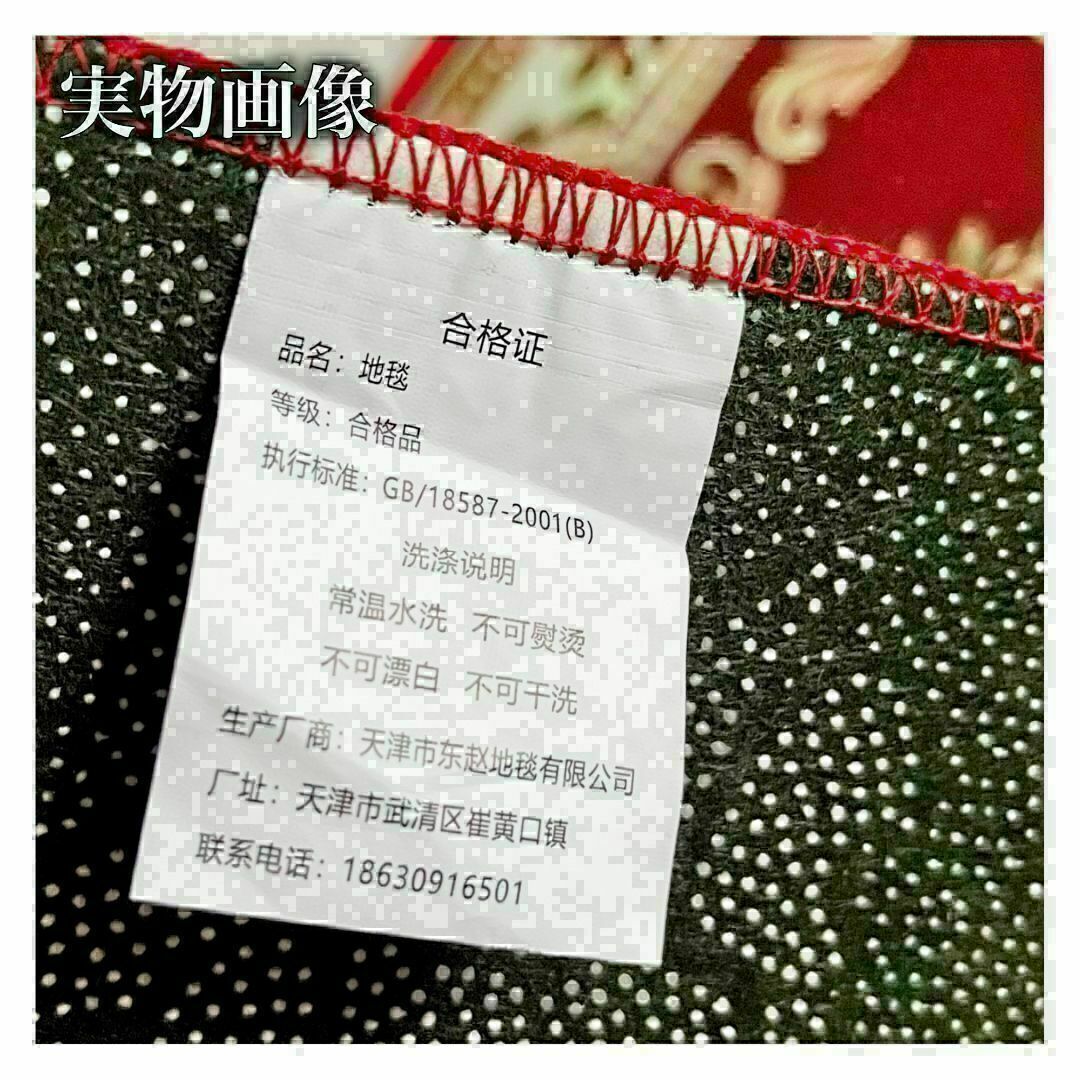 実物画像
合格证
品名：地毯
等级：合格品
执行标准：GB/18587-2001(B)
洗涤说明
常温水洗 不可熨烫
不可漂白 不可干洗
生产厂商：天津市东赵地毯有限公司
厂址：天津市武清区崔黄口镇
联系电话：18630916501